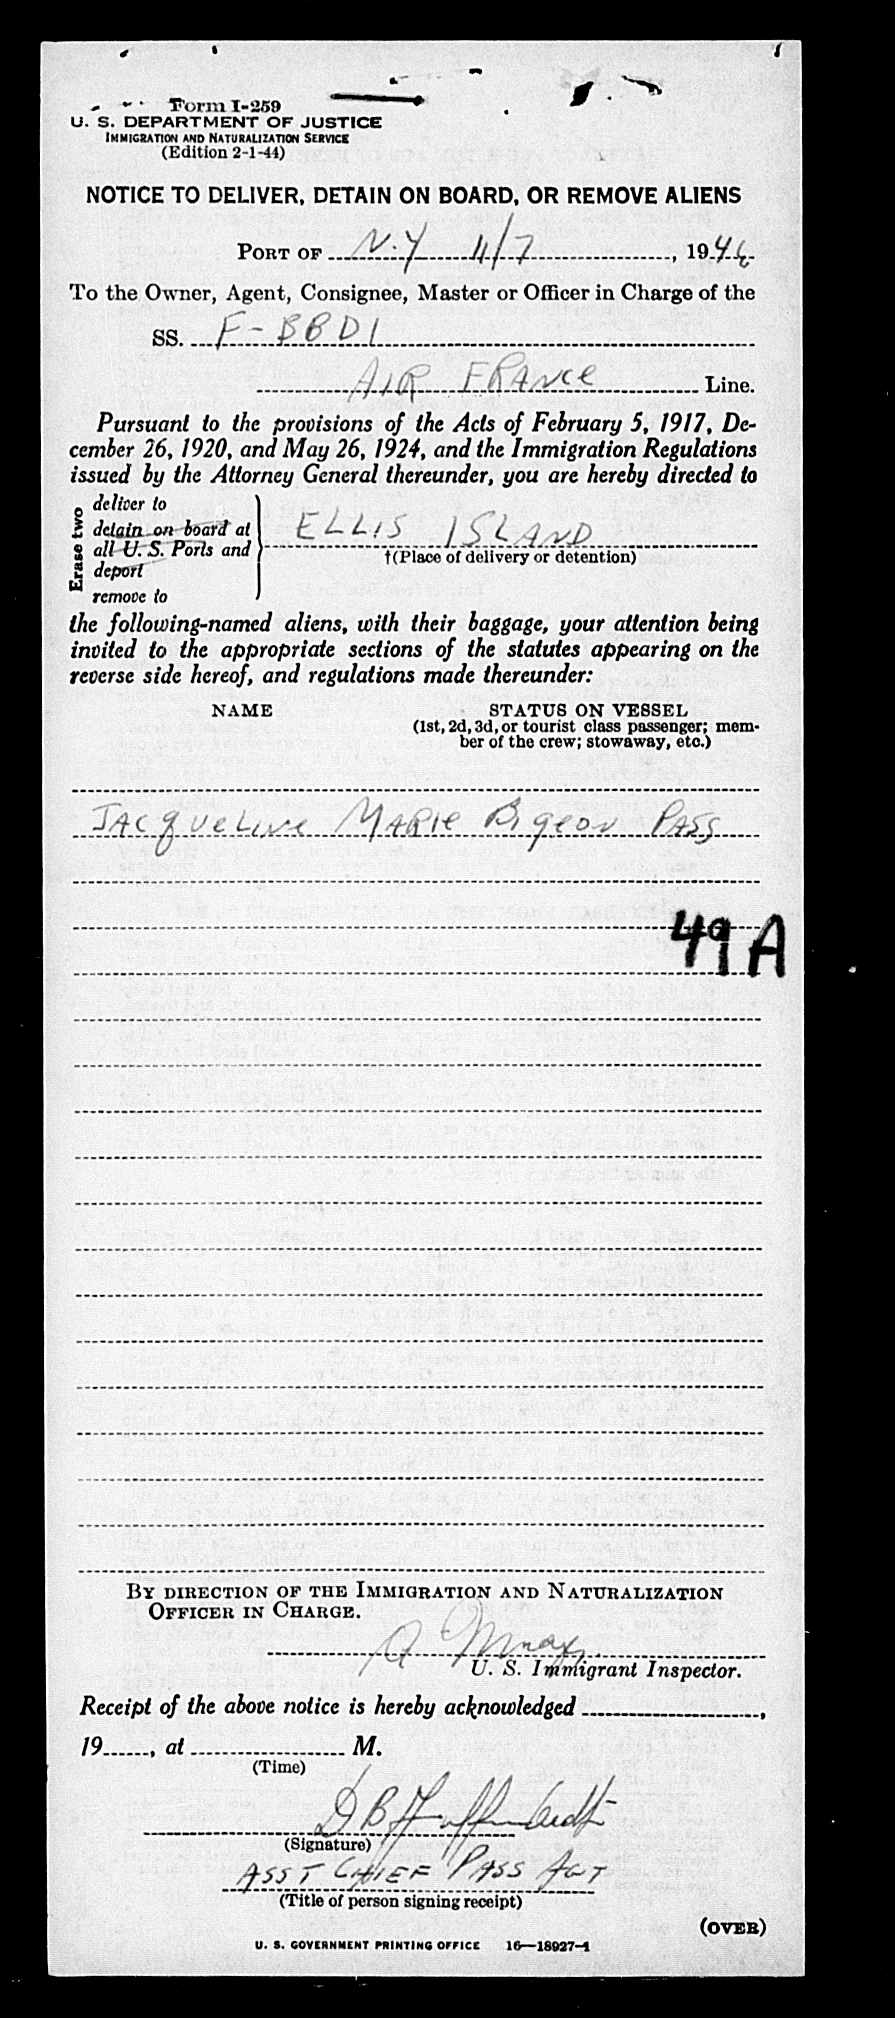 Form I-259
U. S. DEPARTMENT OF JUSTICE
IMMIGRATION AND NATURALIZATION SERVICE
(Edition 2-1-44)
NOTICE TO DELIVER, DETAIN ON BOARD, OR REMOVE ALIENS
PORT OF N.Y 11/7, 1946
To the Owner, Agent, Consignee, Master or Officer in Charge of the
SS. F-BBDI
AIR FRANCE Line.
Pursuant to the provisions of the Acts of February 5, 1917, De-
cember 26, 1920, and May 26, 1924, and the Immigration Regulations
issued by the Attorney General thereunder, you are hereby directed to
Erase two
deliver to
detain on board at
all U. S. Ports and
deport
remove to
ELLIS ISLAND
†(Place of delivery or detention)
the following-named aliens, with their baggage, your attention being
invited to the appropriate sections of the statutes appearing on the
reverse side hereof, and regulations made thereunder:
NAME STATUS ON VESSEL
(1st, 2d, 3d, or tourist class passenger; mem-
ber of the crew; stowaway, etc.)
JACQUELINE MARIE BIGEON PASS
49A
BY DIRECTION OF THE IMMIGRATION AND NATURALIZATION
OFFICER IN CHARGE.
U. S. Immigrant Inspector.
Receipt of the above notice is hereby acknowledged ,
19 , at M.
(Time)
D B
(Signature)
ASST CHIEF PASS AGT
(Title of person signing receipt)
(OVER)
U. S. GOVERNMENT PRINTING OFFICE 16—18927-1